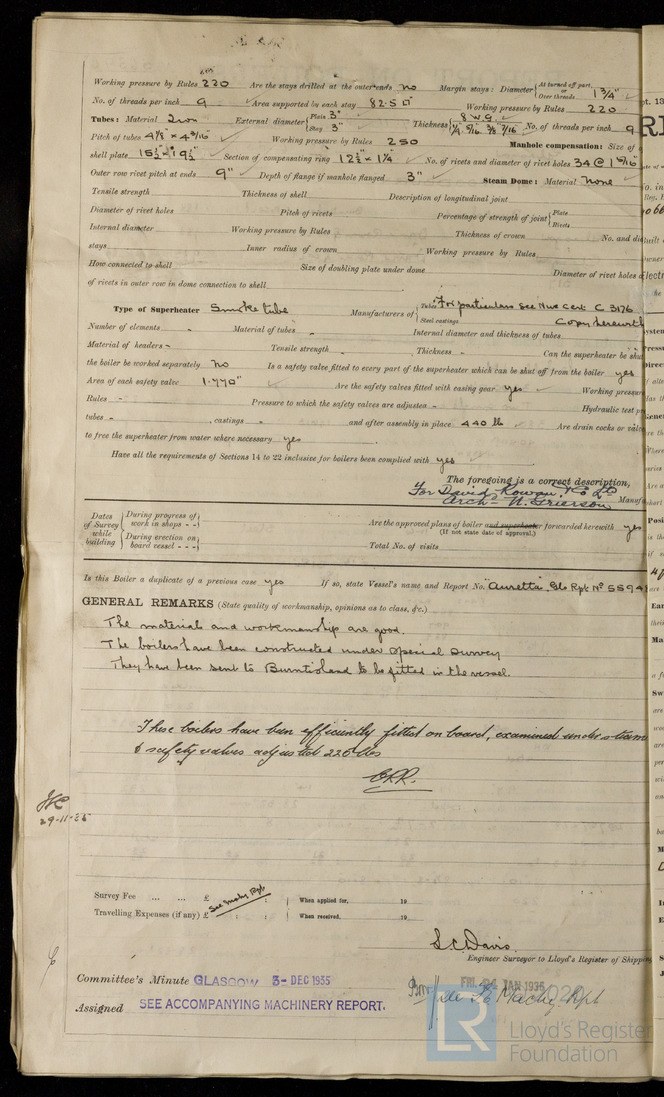 Working pressure by Rules 220 Are the stays drilled at the outer ends No Margin stays: Diameter { At turned off part, or Over threads 1 3/4"
No. of threads per inch 9 Area supported by each stay 82.5 □" Working pressure by Rules 220
Tubes: Material Iron External diameter { Plain 3" Stay 3" Thickness { 8 W.G. 1/4 5/16 3/8 7/16 No. of threads per inch 9
Pitch of tubes 4 1/8" x 4 3/16" Working pressure by Rules 250 Manhole compensation: Size of
shell plate 15 1/2" x 19 1/2" Section of compensating ring 12 1/2" x 1 1/4" No. of rivets and diameter of rivet holes 34 @ 1 5/16"
Outer row rivet pitch at ends 9" Depth of flange if manhole flanged 3" Steam Dome: Material None
Tensile strength Thickness of shell Description of longitudinal joint
Diameter of rivet holes Pitch of rivets Percentage of strength of joint { Plate Rivets
Internal diameter Working pressure by Rules Thickness of crown No. and di
stays Inner radius of crown Working pressure by Rules
How connected to shell Size of doubling plate under dome Diameter of rivet holes
of rivets in outer row in dome connection to shell
Type of Superheater Smoke tube Manufacturers of { Tubes For particulars see Nwc Cert. C 3176
Steel castings Copy herewith
Number of elements - Material of tubes - Internal diameter and thickness of tubes
Material of headers - Tensile strength - Thickness - Can the superheater be shut
the boiler be worked separately No Is a safety valve fitted to every part of the superheater which can be shut off from the boiler yes
Area of each safety valve 1.770" Are the safety valves fitted with easing gear yes Working pressure
Rules - Pressure to which the safety valves are adjusted - Hydraulic test p
tubes - , castings - and after assembly in place 440 lb Are drain cocks or valv
to free the superheater from water where necessary yes
Have all the requirements of Sections 14 to 22 inclusive for boilers been complied with yes
The foregoing is a correct description,
For David Rowan & Co Ld
Arch. W. Grierson Manuf
Dates of Survey while building { During progress of work in shops - - } Are the approved plans of boiler and superheater forwarded herewith yes
(If not state date of approval.)
{ During erection on board vessel - - - } Total No. of visits
Is this Boiler a duplicate of a previous case yes If so, state Vessel's name and Report No. "Auretta" Gls Rpt No 5594
GENERAL REMARKS (State quality of workmanship, opinions as to class, &c.)
The materials and workmanship are good.
The boilers have been constructed under special survey
They have been sent to Burntisland to be fitted in the vessel.
These boilers have been efficiently fitted on board, examined under steam
& safety valves adjusted 220 lbs
29-11-35
Survey Fee ... ... £ See Mchy Rpt : : When applied for, 19
Travelling Expenses (if any) £ : : When received, 19
S.C. Davis.
Engineer Surveyor to Lloyd's Register of Shipping
Committee's Minute GLASGOW 3- DEC 1935
FRI. 24 JAN 1936
Assigned SEE ACCOMPANYING MACHINERY REPORT.
LR
Lloyd's Register
Foundation